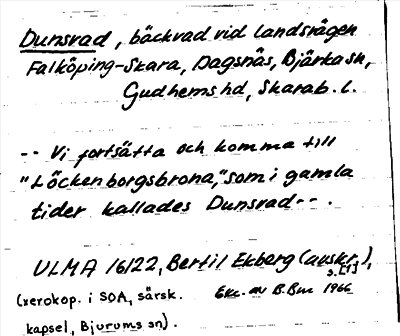 Dunsvad, bäckvad vid landsvägen
Falköping-Skara, Dagsnäs, Bjärka sn,
Gudhems hd, Skarab. l.
-- Vi fortsätta och komma till
"Löckenborgsbrona," som i gamla
tider kallades Dunsvad--.
ULMA 16122, Bertil Ekberg (avskr.),
s.[1]
(xerokop. i SOA, särsk. Exc. av B.Bm 1966
kapsel, Bjurums sn).